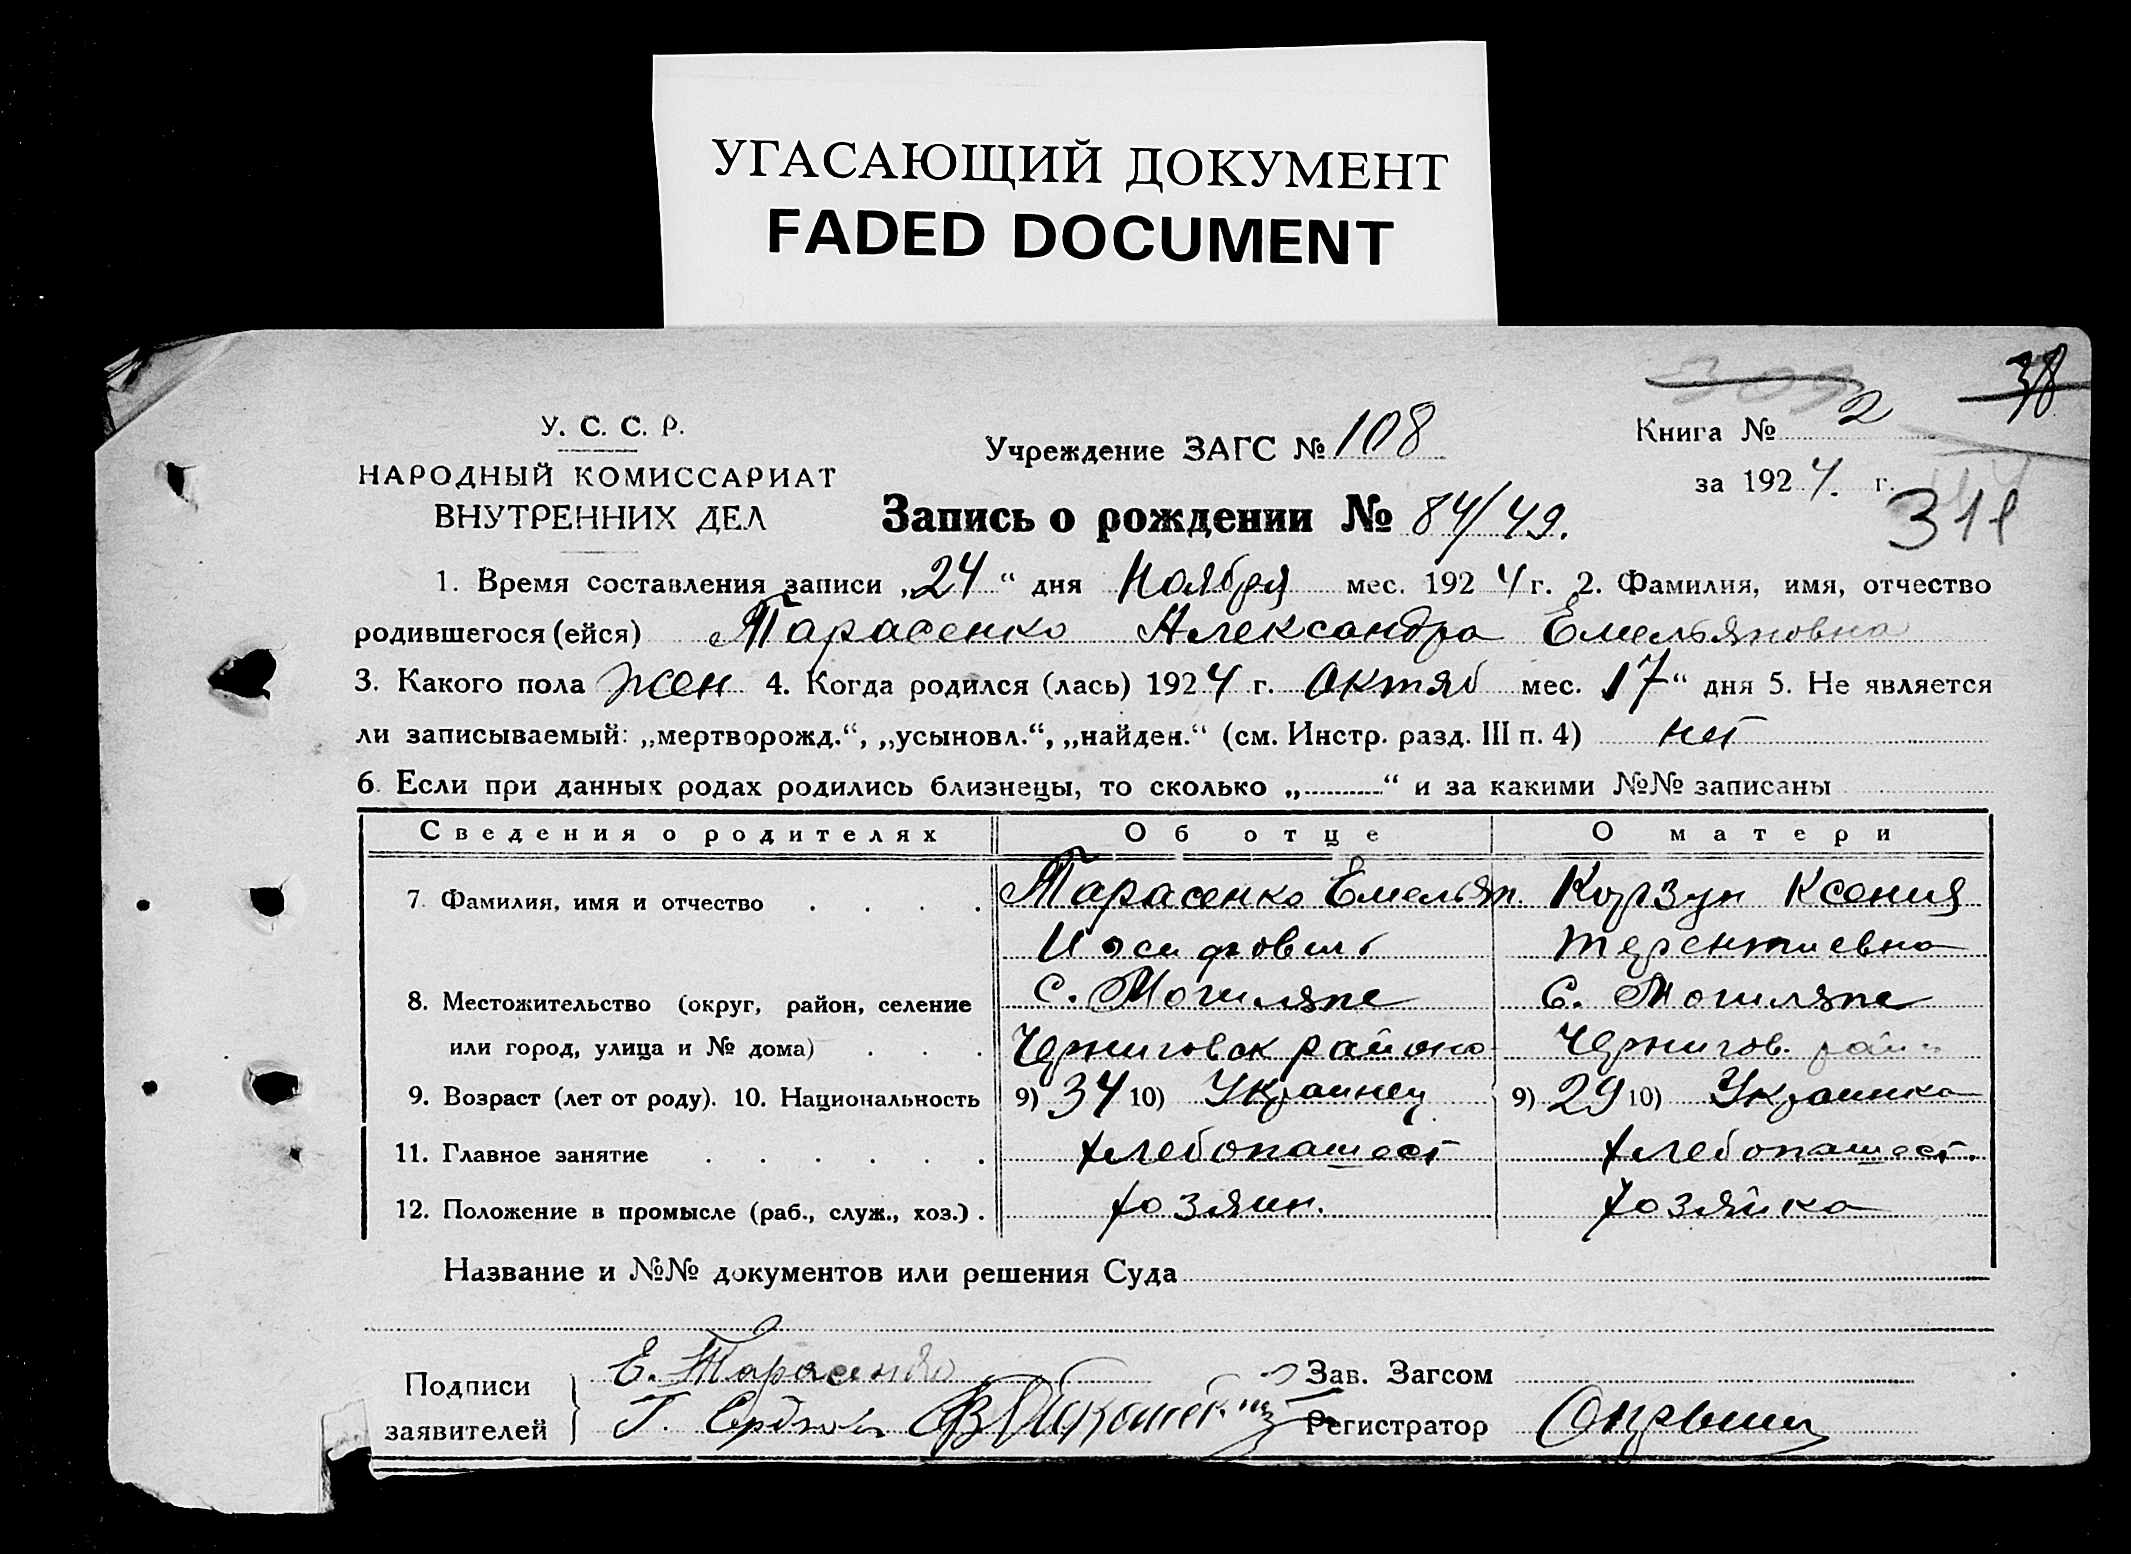 УГАСАЮЩИЙ ДОКУМЕНТ
FADED DOCUMENT
309 38
У. С. С. Р.
НАРОДНЫЙ КОМИССАРИАТ
ВНУТРЕННИХ ДЕЛ
Учреждение ЗАГС № 108
Запись о рождении № 84/49.
Книга № 2
за 1924. г.
311
1. Время составления записи „24“ дня Ноября мес. 1924 г. 2. Фамилия, имя, отчество
родившегося (ейся) Тарасенко Александра Емельяновна
3. Какого пола жен 4. Когда родился (лась) 1924 г. октяб мес. 17“ дня 5. Не является
ли записываемый: „мертворожд.“, „усыновл.“, „найден.“ (см. Инстр. разд. III п. 4) нет
6. Если при данных родах родились близнецы, то сколько „..........“ и за какими №№ записаны
Сведения о родителях Об отце О матери
7. Фамилия, имя и отчество . . . . Тарасенко Емельян Корзун Ксения
Иосифович Терентиевна
8. Местожительство (округ, район, селение с. Могиляне с. Могиляне
или город, улица и № дома) . . . Черниговск района Чернигов. райо
9. Возраст (лет от роду). 10. Национальность 9) 34 10) Украинец 9) 29 10) Украинка
11. Главное занятие . . . . . . хлебопашест хлебопашест.
12. Положение в промысле (раб., служ., хоз.) . хозяин. хозяйка
Название и №№ документов или решения Суда
Подписи
заявителей
Е. Тарасенко
Г.
Зав. Загсом
Регистратор